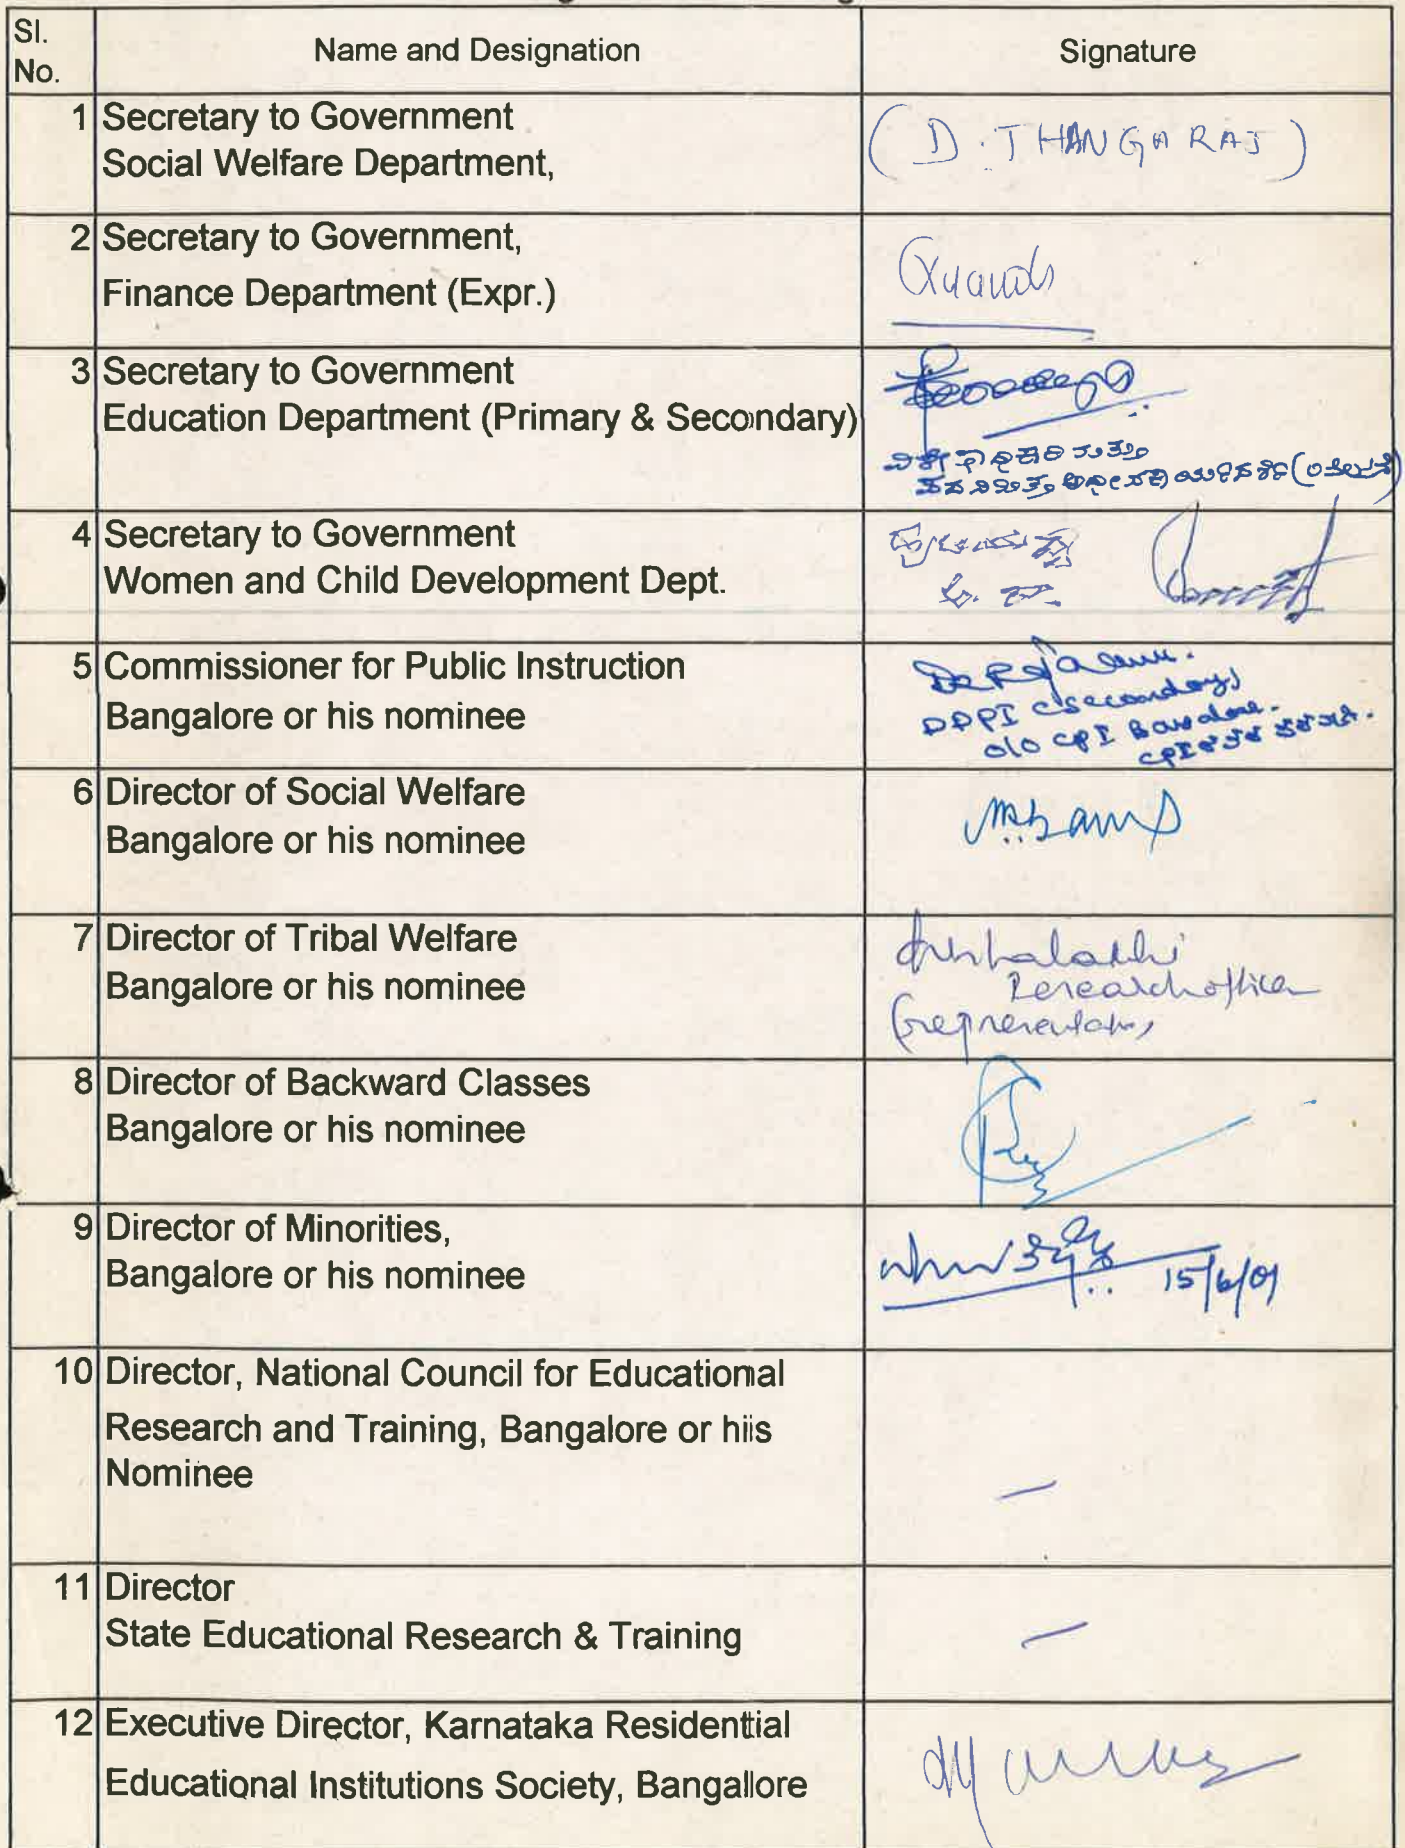 Sl.
No.
Name and Designation
Signature
1 Secretary to Government
Social Welfare Department,
(D. THANGARAJ)
2 Secretary to Government,
Finance Department (Expr.)
3 Secretary to Government
Education Department (Primary & Secondary)
4 Secretary to Government
Women and Child Development Dept.
5 Commissioner for Public Instruction
Bangalore or his nominee
DDPI (Secondary)
O/o CPI Bangalore.
CPI
6 Director of Social Welfare
Bangalore or his nominee
7 Director of Tribal Welfare
Bangalore or his nominee
Research officer
8 Director of Backward Classes
Bangalore or his nominee
9 Director of Minorities,
Bangalore or his nominee
15/6/01
10 Director, National Council for Educational
Research and Training, Bangalore or his
Nominee
—
11 Director
State Educational Research & Training
—
12 Executive Director, Karnataka Residential
Educational Institutions Society, Bangalore